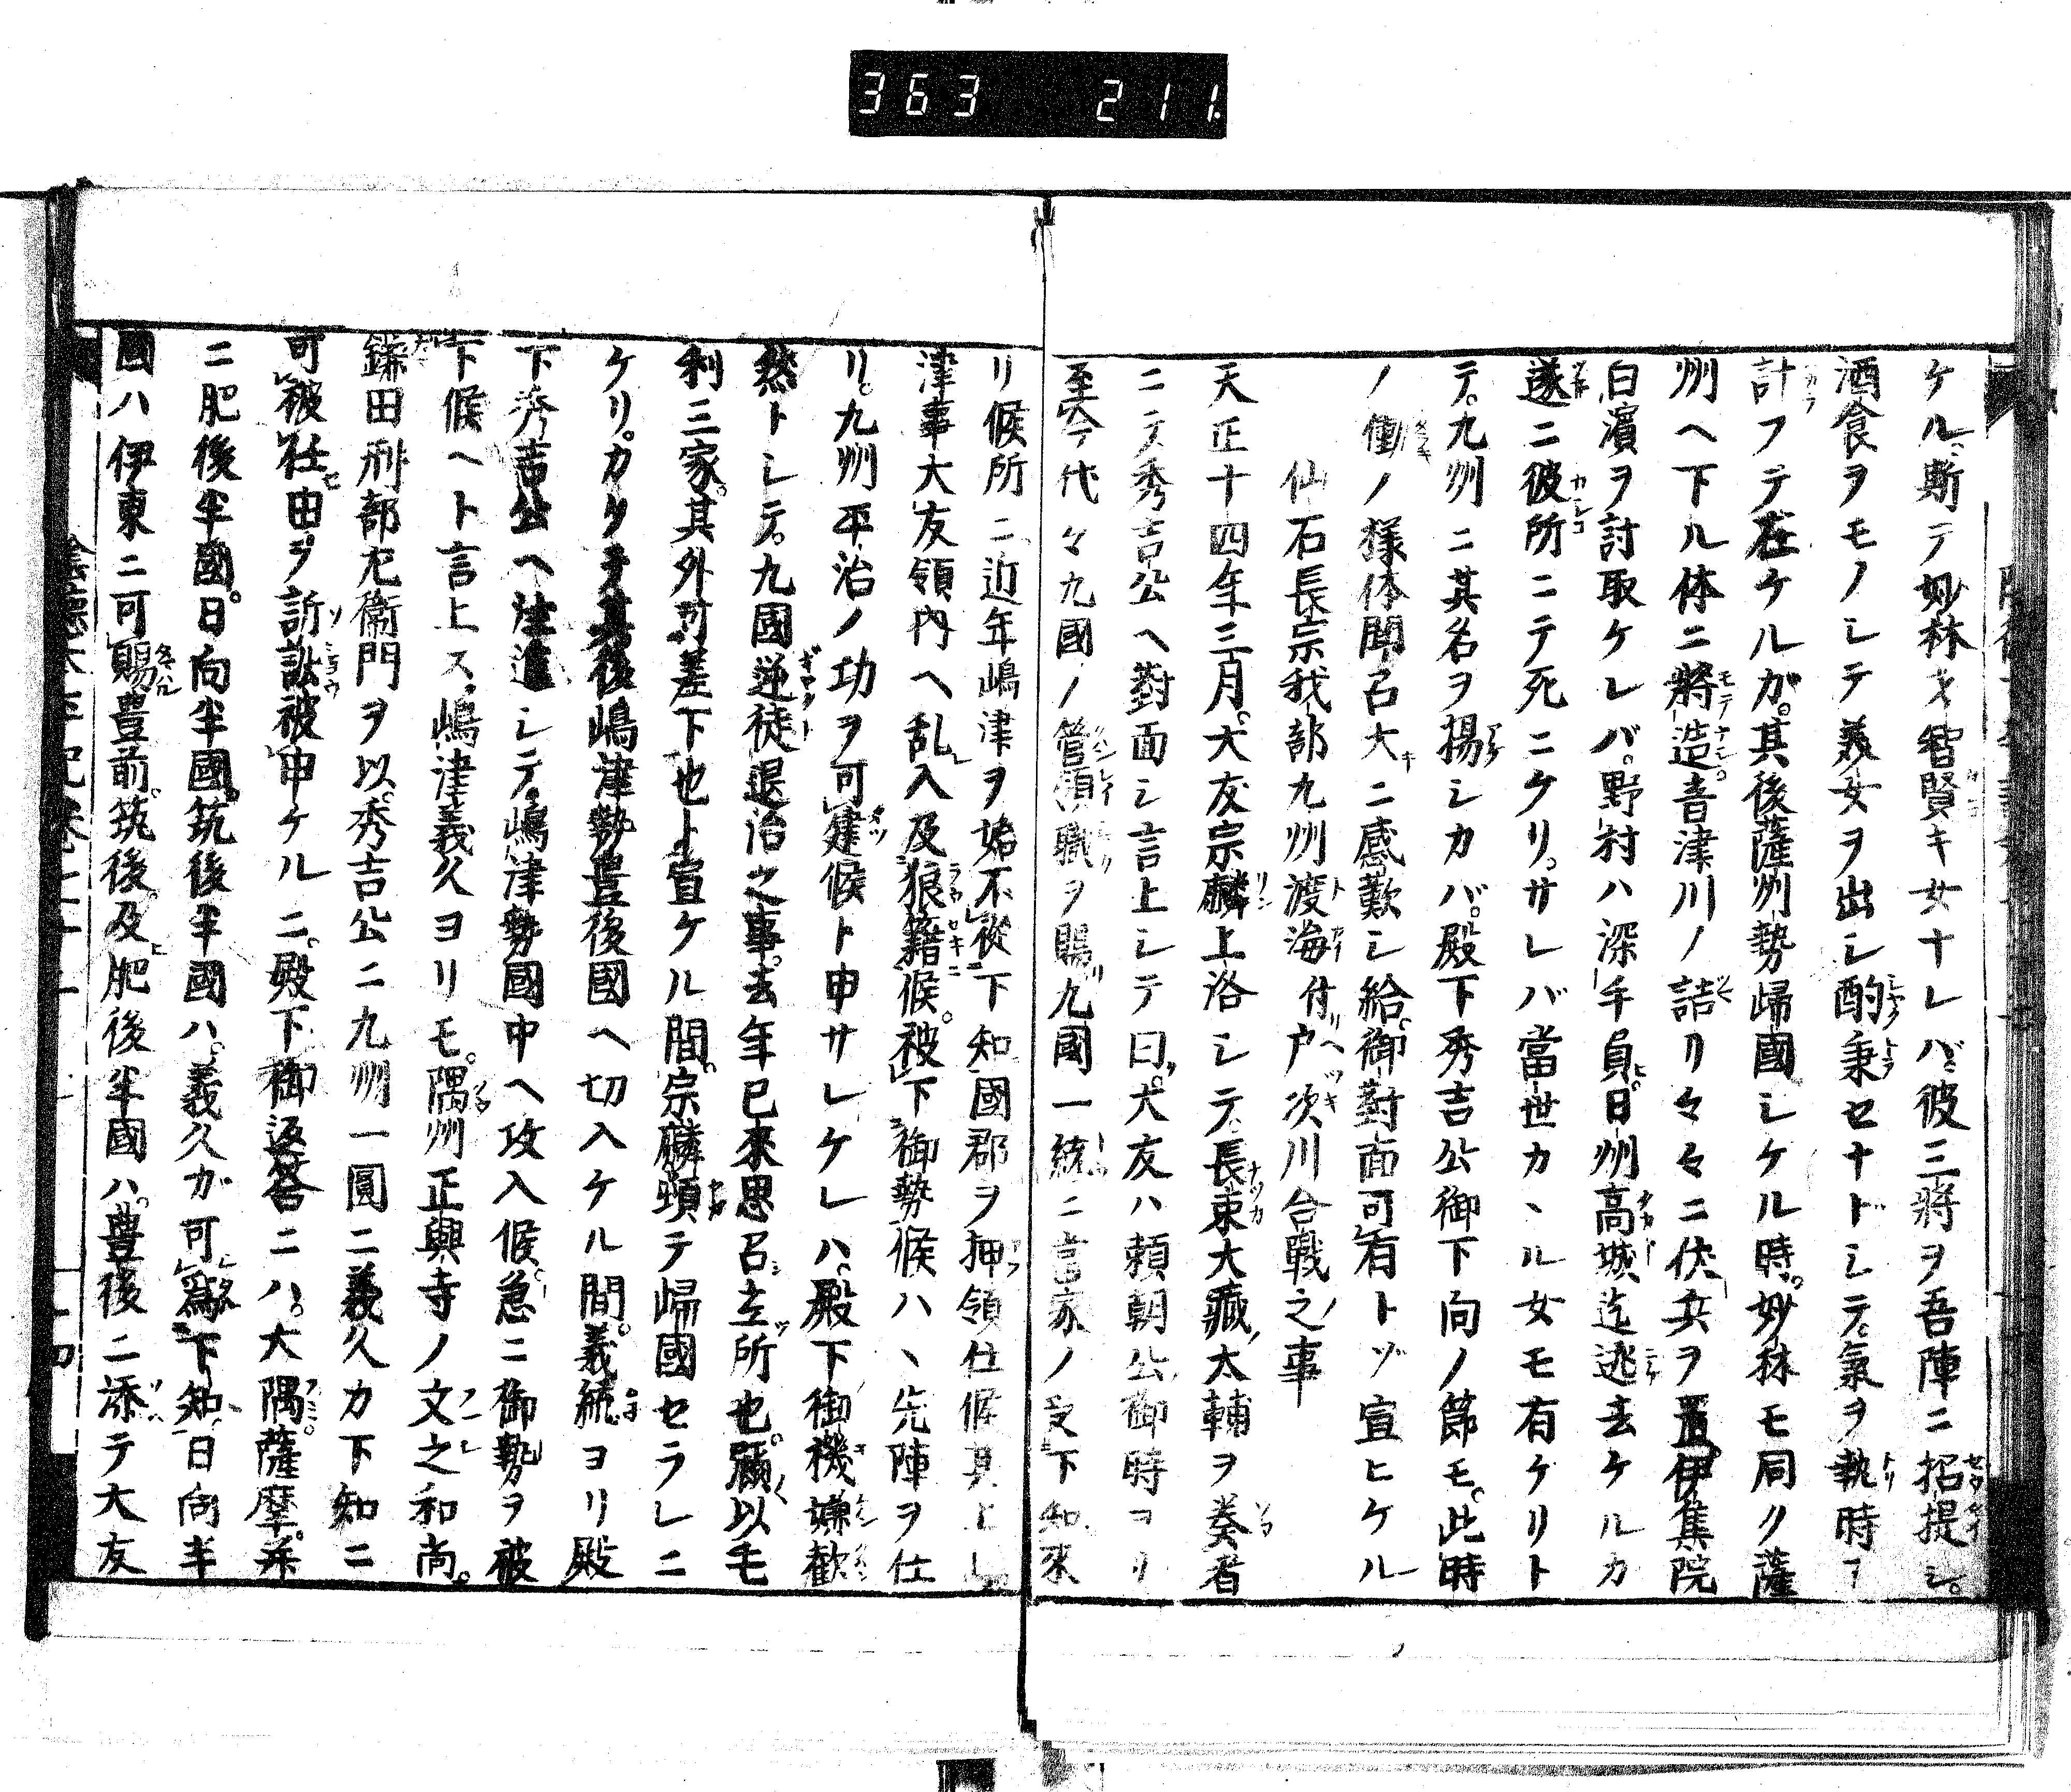 363 211.
ケル。斯テ妙林ハ智賢キ女ナレバ。彼三將ヲ吾陣ニ招提シ。
酒食ヲモノシテ美女ヲ出シ酌秉セナドシテ。氣ヲ執時ヲ
計フテ在ケルガ。其後薩州勢歸國シケル時。妙林モ同ク薩
州ヘ下ル体ニ將造。音津川ノ詰リ々々ニ伏兵ヲ置。伊集院
白濱ヲ討取ケレバ。野村ハ深手負ヒ。日州高城迄迯去ケルカ
遂ニ彼所ニテ死ニケリ。サレバ當世カヽル女モ有ケリト
テ。九州ニ其名ヲ揚シカバ。殿下秀吉公御下向ノ節モ。此時
ノ働ノ様体聞召大ニ感歎シ給。御對面可有トゾ宣ヒケル
仙石長宗我部九州渡海付戸次川合戰之事
天正十四年三月。大友宗麟上洛シテ。長束大藏太輔ヲ奏者
ニテ秀吉公ヘ對面シ言上シテ曰。大友ハ頼朝公御時ヨリ
至今代々九國ノ管領職ヲ賜リ九國一統ニ當家ノ受下知來
リ候所ニ近年嶋津ヲ始不從下知國郡ヲ押領仕候其上
津事大友領内ヘ乱入及狼籍候。被下御勢候ハヽ先陣ヲ仕
リ。九州平治ノ功ヲ可建候ト申サレケレハ。殿下御機嫌歡
然トシテ。九國逆徒退治之事。去年已來思召立所也。以毛
利三家。其外可差下也ト宣ケル間。宗麟頓テ歸國セラレニ
ケリ。カクテ其後嶋津勢豊後國ヘ切入ケル間。義統ヨリ殿
下秀吉公ヘ注進シテ。嶋津勢國中ヘ攻入候。急ニ御勢ヲ被
下候ヘト言上ス。嶋津義久ヨリモ。隅州正興寺ノ文之和尚。
鎌田刑部左衞門ヲ以。秀吉公ニ九州一圓ニ義久カ下知ニ
可被任由ヲ訴訟被申ケルニ。殿下御返答ニハ。大隅。薩摩。并
ニ肥後半國。日向半國。筑後半國ハ。義久ガ可爲下知。日向半
國ハ伊東ニ可賜。豊前。筑後。及肥後半國ハ。豊後ニ添テ大友